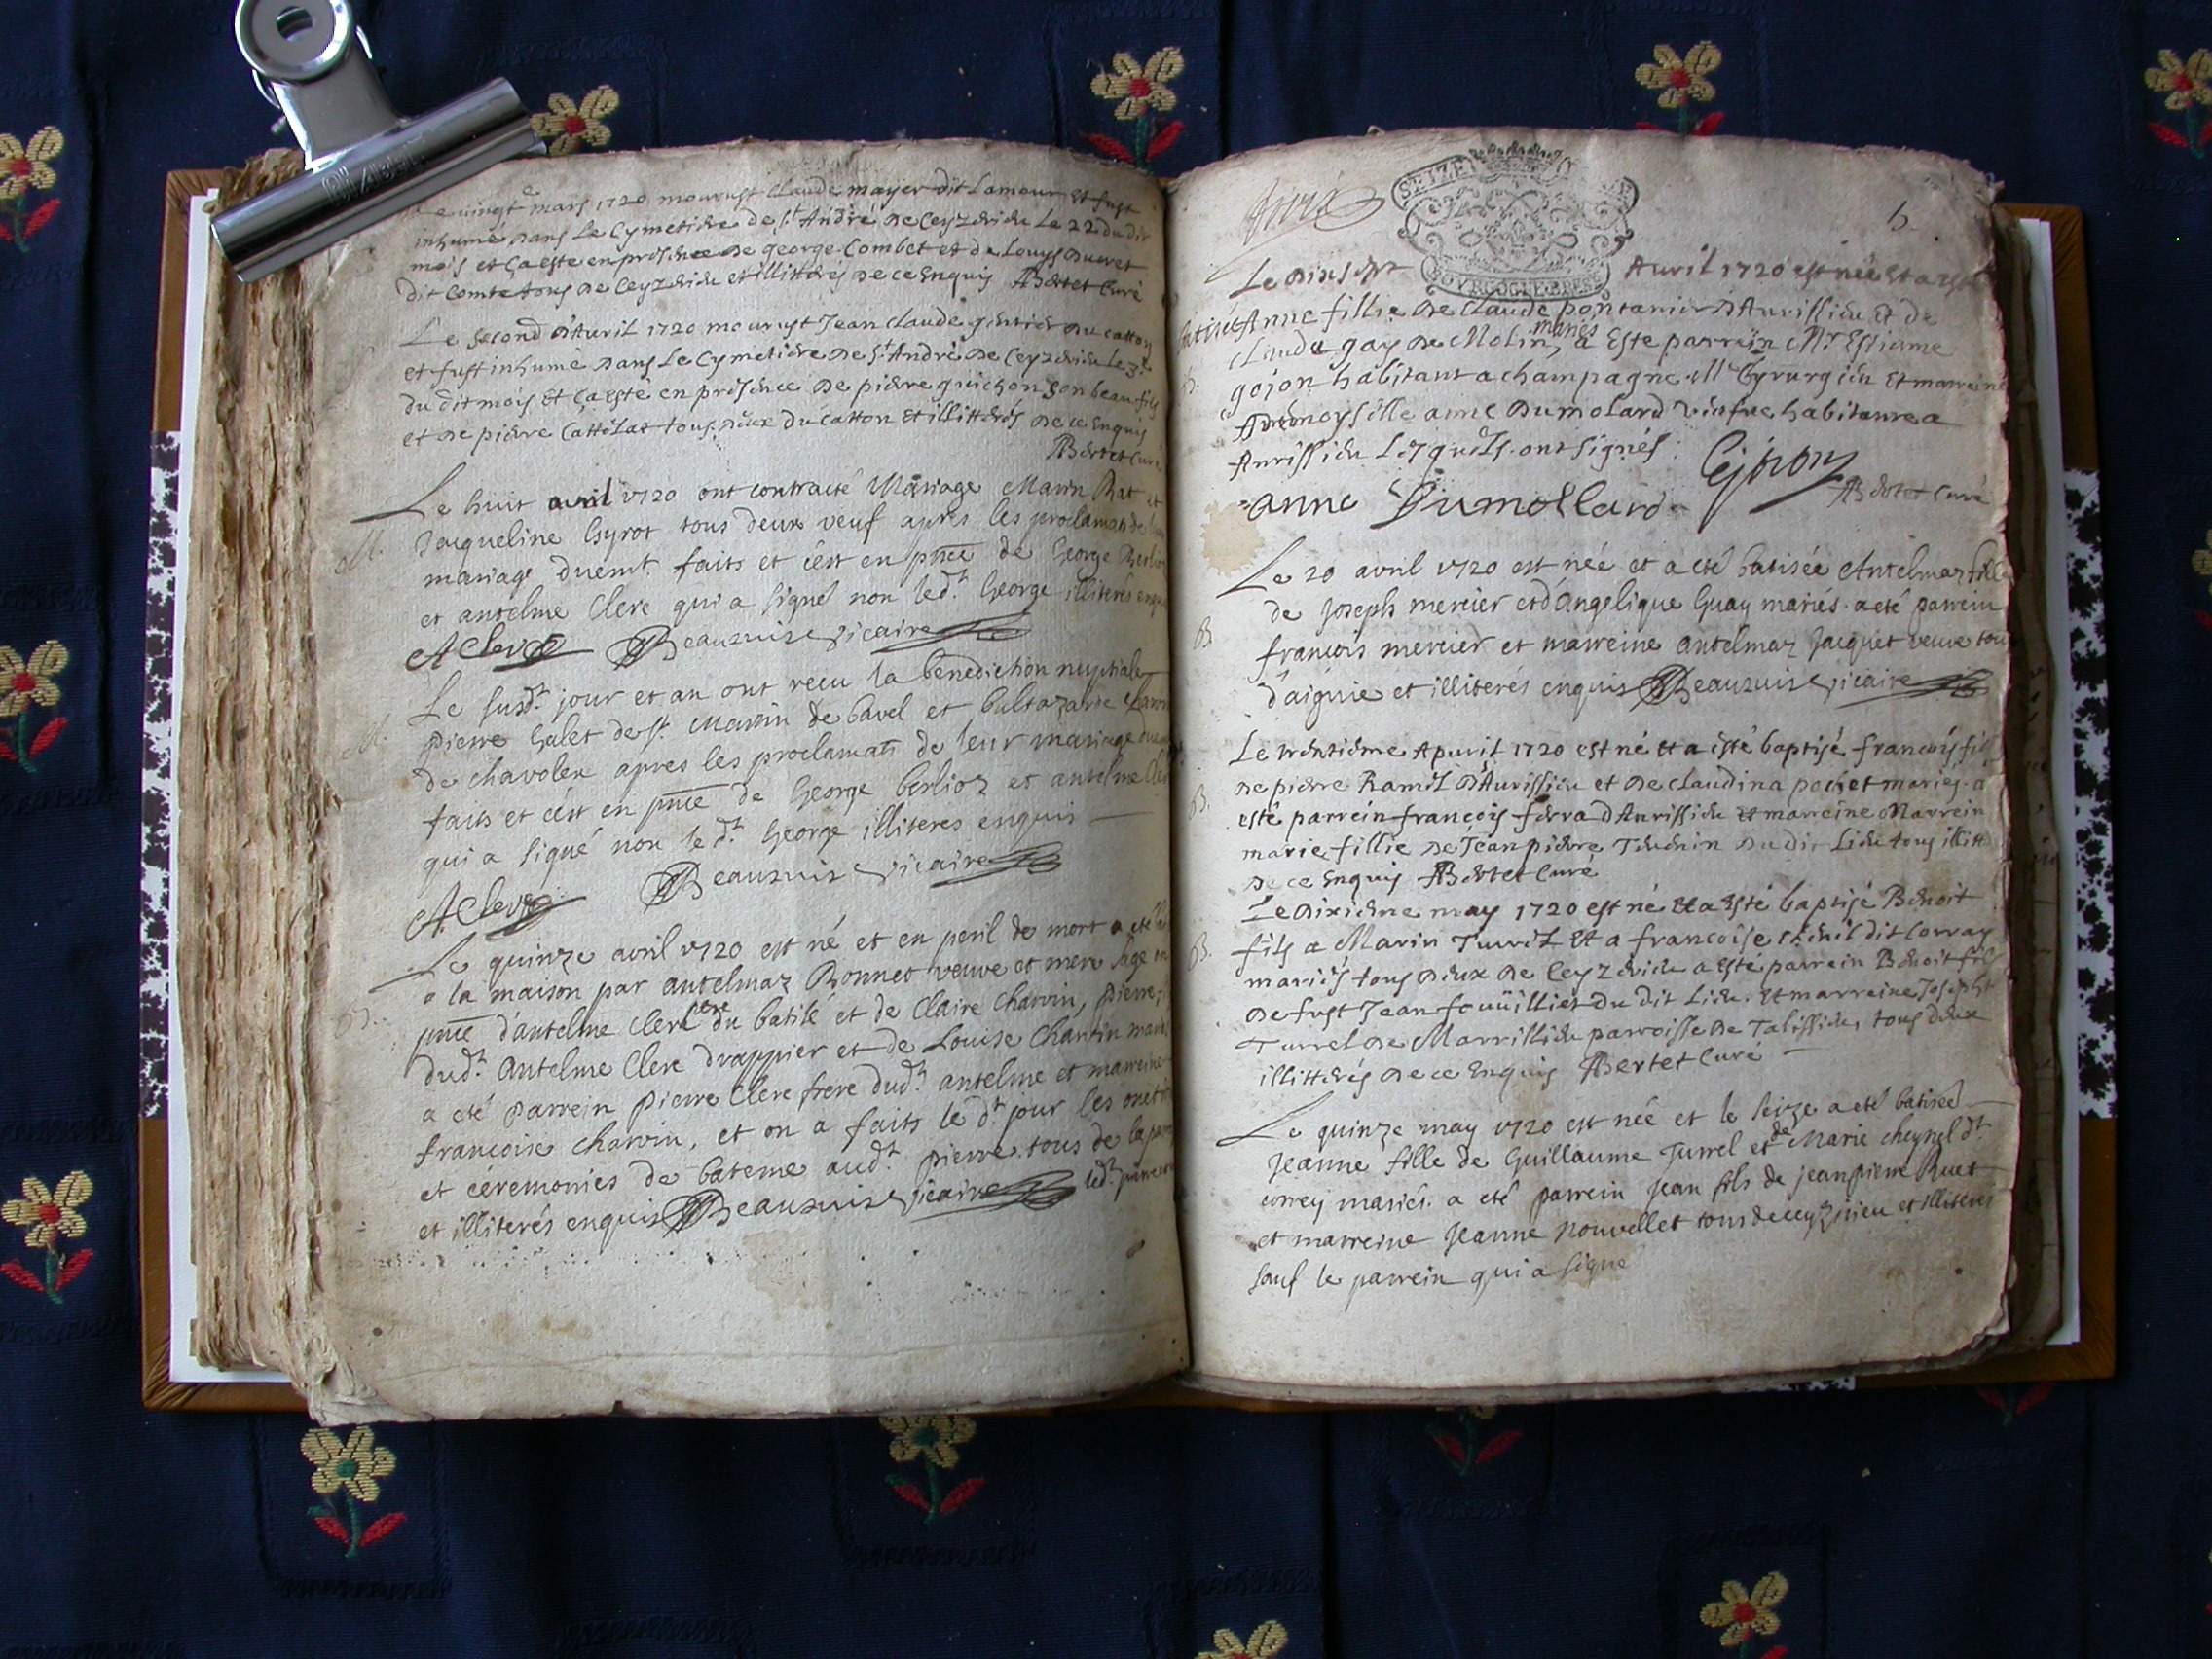 Le vingt mars 1720 mourust Claude mayer dit Lamour Et fust
inhumé dans Le Cymetiere de St André de Ceyzerieu Le 22 du dit
mois et ca este en presence de george Combet et de Louys
dit Comte tous de Ceyzerieu et illitterés de ce Enquis ABertet Curé
Le second d'Auril 1720 mourust Jean Claude du catton
et fust inhumé dans Le Cymetiere de St André de Ceyzerieu Le 3e
du dit mois Et ca esté en presence de pierre guichon son beau fils
et de pierre Cattelat tous deux du Catton Et illitterés de ce Enquis
ABertet Curé
Le huit avril 1720 ont contracté Mariage Marin Rat et
Jacqueline Gyrot tous deux veuf apres les proclamaons de
mariage duemt faits et c'est en pnce de George Berlioz
et antelme Clerc qui a signé non led.t George illiterés enquis
AClerc Beauzuise vicaire
M.
Le susd.t jour et an ont recu la benediction nuptiale
pierre Galet de St. Martin de bavel et baltazarde
de chavolex apres les proclamaon de leur mariage
faits et c'est en pnce de George berlioz et antelme Clerc
qui a signé non le d.t George illiteres enquis
AClerc Beauzuise vicaire
Le quinze avril 1720 est né et en peril de mort a eté
a la maison par antelmaz Bonnet veuve et mere sage en
pnce d'antelme Clerc pere du batisé et de Claire Charvin, pierre,
dud.t Antelme Clerc drappier et de Louise Charvin mariés
a eté parrein pierre Clerc frere dud.t antelme et marreine
francoise charvin, et on a faits le d.t jour les
et céremonies de bateme aud.t pierre. tous de
et illiterés enquis Beauzuise vicaire led.t
SEIZE
BOURGOGNE BRES
5
Le dixsept Auril 1720 est née Et a esté
batisée Anne fillie de Claude pontanier d'Aurissieu Et de
Claude gay de Molin, mariés a Este parrein Mr Estienne
gojon habitant a champagne Mr Cyrurgien Et marreine
Anne Dumolard habitante a
Aurissieu Lesquels ont signés: Gojon
anne Dumollard ABertet Curé
B
Le 20 avril 1720 est née et a eté batisée Antelmaz fille
de Joseph mercier et d'Angelique Guay mariés. a eté parrein
francois mercier et marreine antelmaz Jacquet veuve tous
d'aignie et illiterés enquis Beauzuise vicaire
B.
Le trentieme Apuril 1720 est né Et a esté baptisé francois fils
de pierre Ramel d'Aurissieu et de Claudina pochet mariés. a
esté parrein francois ferra d'Aurissieu et marreine Marrein
marie fillie de Jean pierre du dit Lieu tous illitt
de ce Enquis ABertet Curé
B.
Le dixieme may 1720 est né Et a Esté baptisé Benoit
fils a Marin Turrel Et a francoise dit Corray
mariés tous deux de Ceyzerieu a Esté parrein Benoit fils
de fust Jean fouüilliet du dit Lieu. Et marreine Josephte
Turrel de Marrillieu parroisse de Talissieu, tous deux
illitterés de ce Enquis ABertet Curé
Le quinze may 1720 est née et le seize a eté batisée
Jeanne fille de Guillaume Turrel et de Marie cheynel d.t
correy mariés. a eté parrein Jean fils de jean pierre Ruet
et marreine Jeanne Nouvellet tous de ceyzerieu et illiterés
sauf le parrein qui a signé